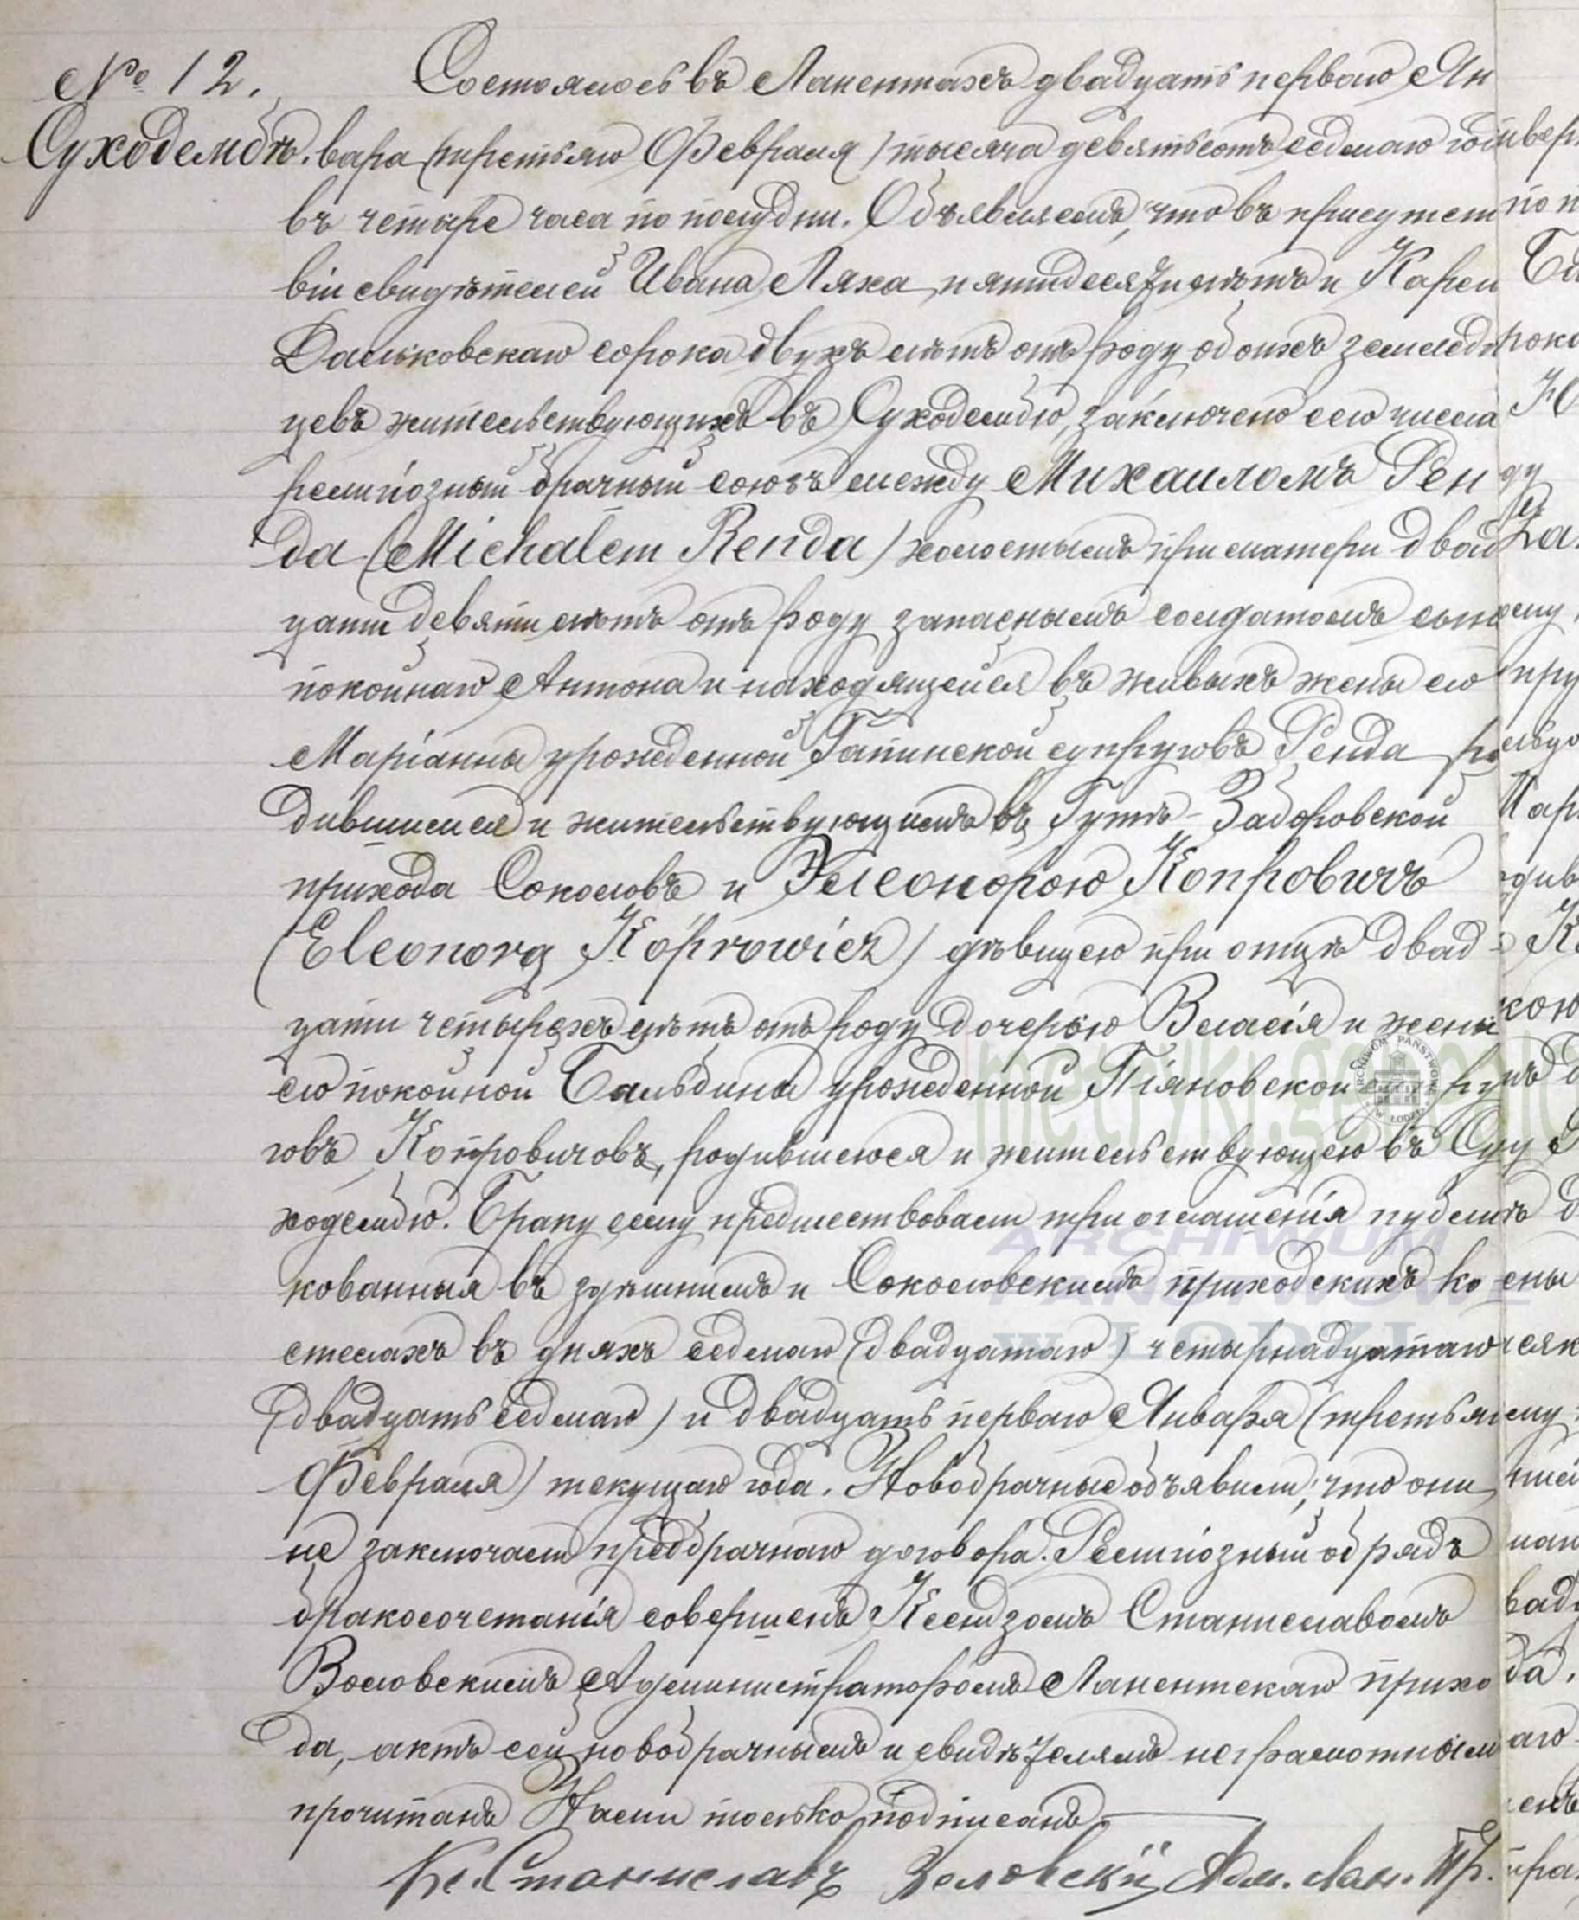 № 12.
Суходембѣ.
Состоялось въ Лакентахъ двадцать перваго Ян
вара (третьяго Февраля) тысяча девятьсотъ седьмаго года
въ четыре часа по полудни. Объявляемъ, что въ присутст
віи свидѣтелей Ивана Ляха, пятидесяти лѣтъ и Карла
Дальковскаго сорока двухъ лѣтъ отъ роду обоихъ земледѣль
цевъ жительствующихъ въ Суходембю, заключенъ сего числа
религіозный брачный союзъ между Михаиломъ Рен
да (Michałem Renda) холостымъ при матери двад
цати девяти лѣтъ отъ роду запаснымъ солдатомъ сыномъ
покойнаго Антона и находящейся въ живыхъ жены его
Маріанны урожденной супруговъ Ренда ро
дившимся и жительствующимъ въ Гутѣ-Заборовской
прихода Соколовъ и Элеонорою Копровичъ
(Eleonorą Koprowicz) дѣвицею при отцѣ двад-
цати четырехъ лѣтъ отъ роду дочерью Власія и жены
его покойной Бальбины урожденной Піяновской супру
говъ Копровичовъ, родившеюся и жительствующею въ Су
ходембю. Браку сему предшествовали три оглашенія публи
кованныя въ здѣшнимъ и Соколовскимъ приходскихъ ко
стелахъ въ дняхъ седьмаго (двадцатаго) четырнадцатаго
(двадцать седьмаго) и двадцать перваго Января (третьяго
Февраля) текущаго года. Новобрачные объявили, что они
не заключали предбрачнаго договора. Религіозный обрядъ
бракосочетанія совершенъ Ксендзомъ Станиславомъ
Администраторомъ Лакентскаго прихо
да, актъ сей новобрачнымъ и свидѣтелямъ неграмотнымъ
прочитанъ Нами только подписанъ
Кс. Станиславъ Адм. Лак. Пр.
metryki.genealo
ARCHIWUM
PAŃSTWOWE
W ŁODZI